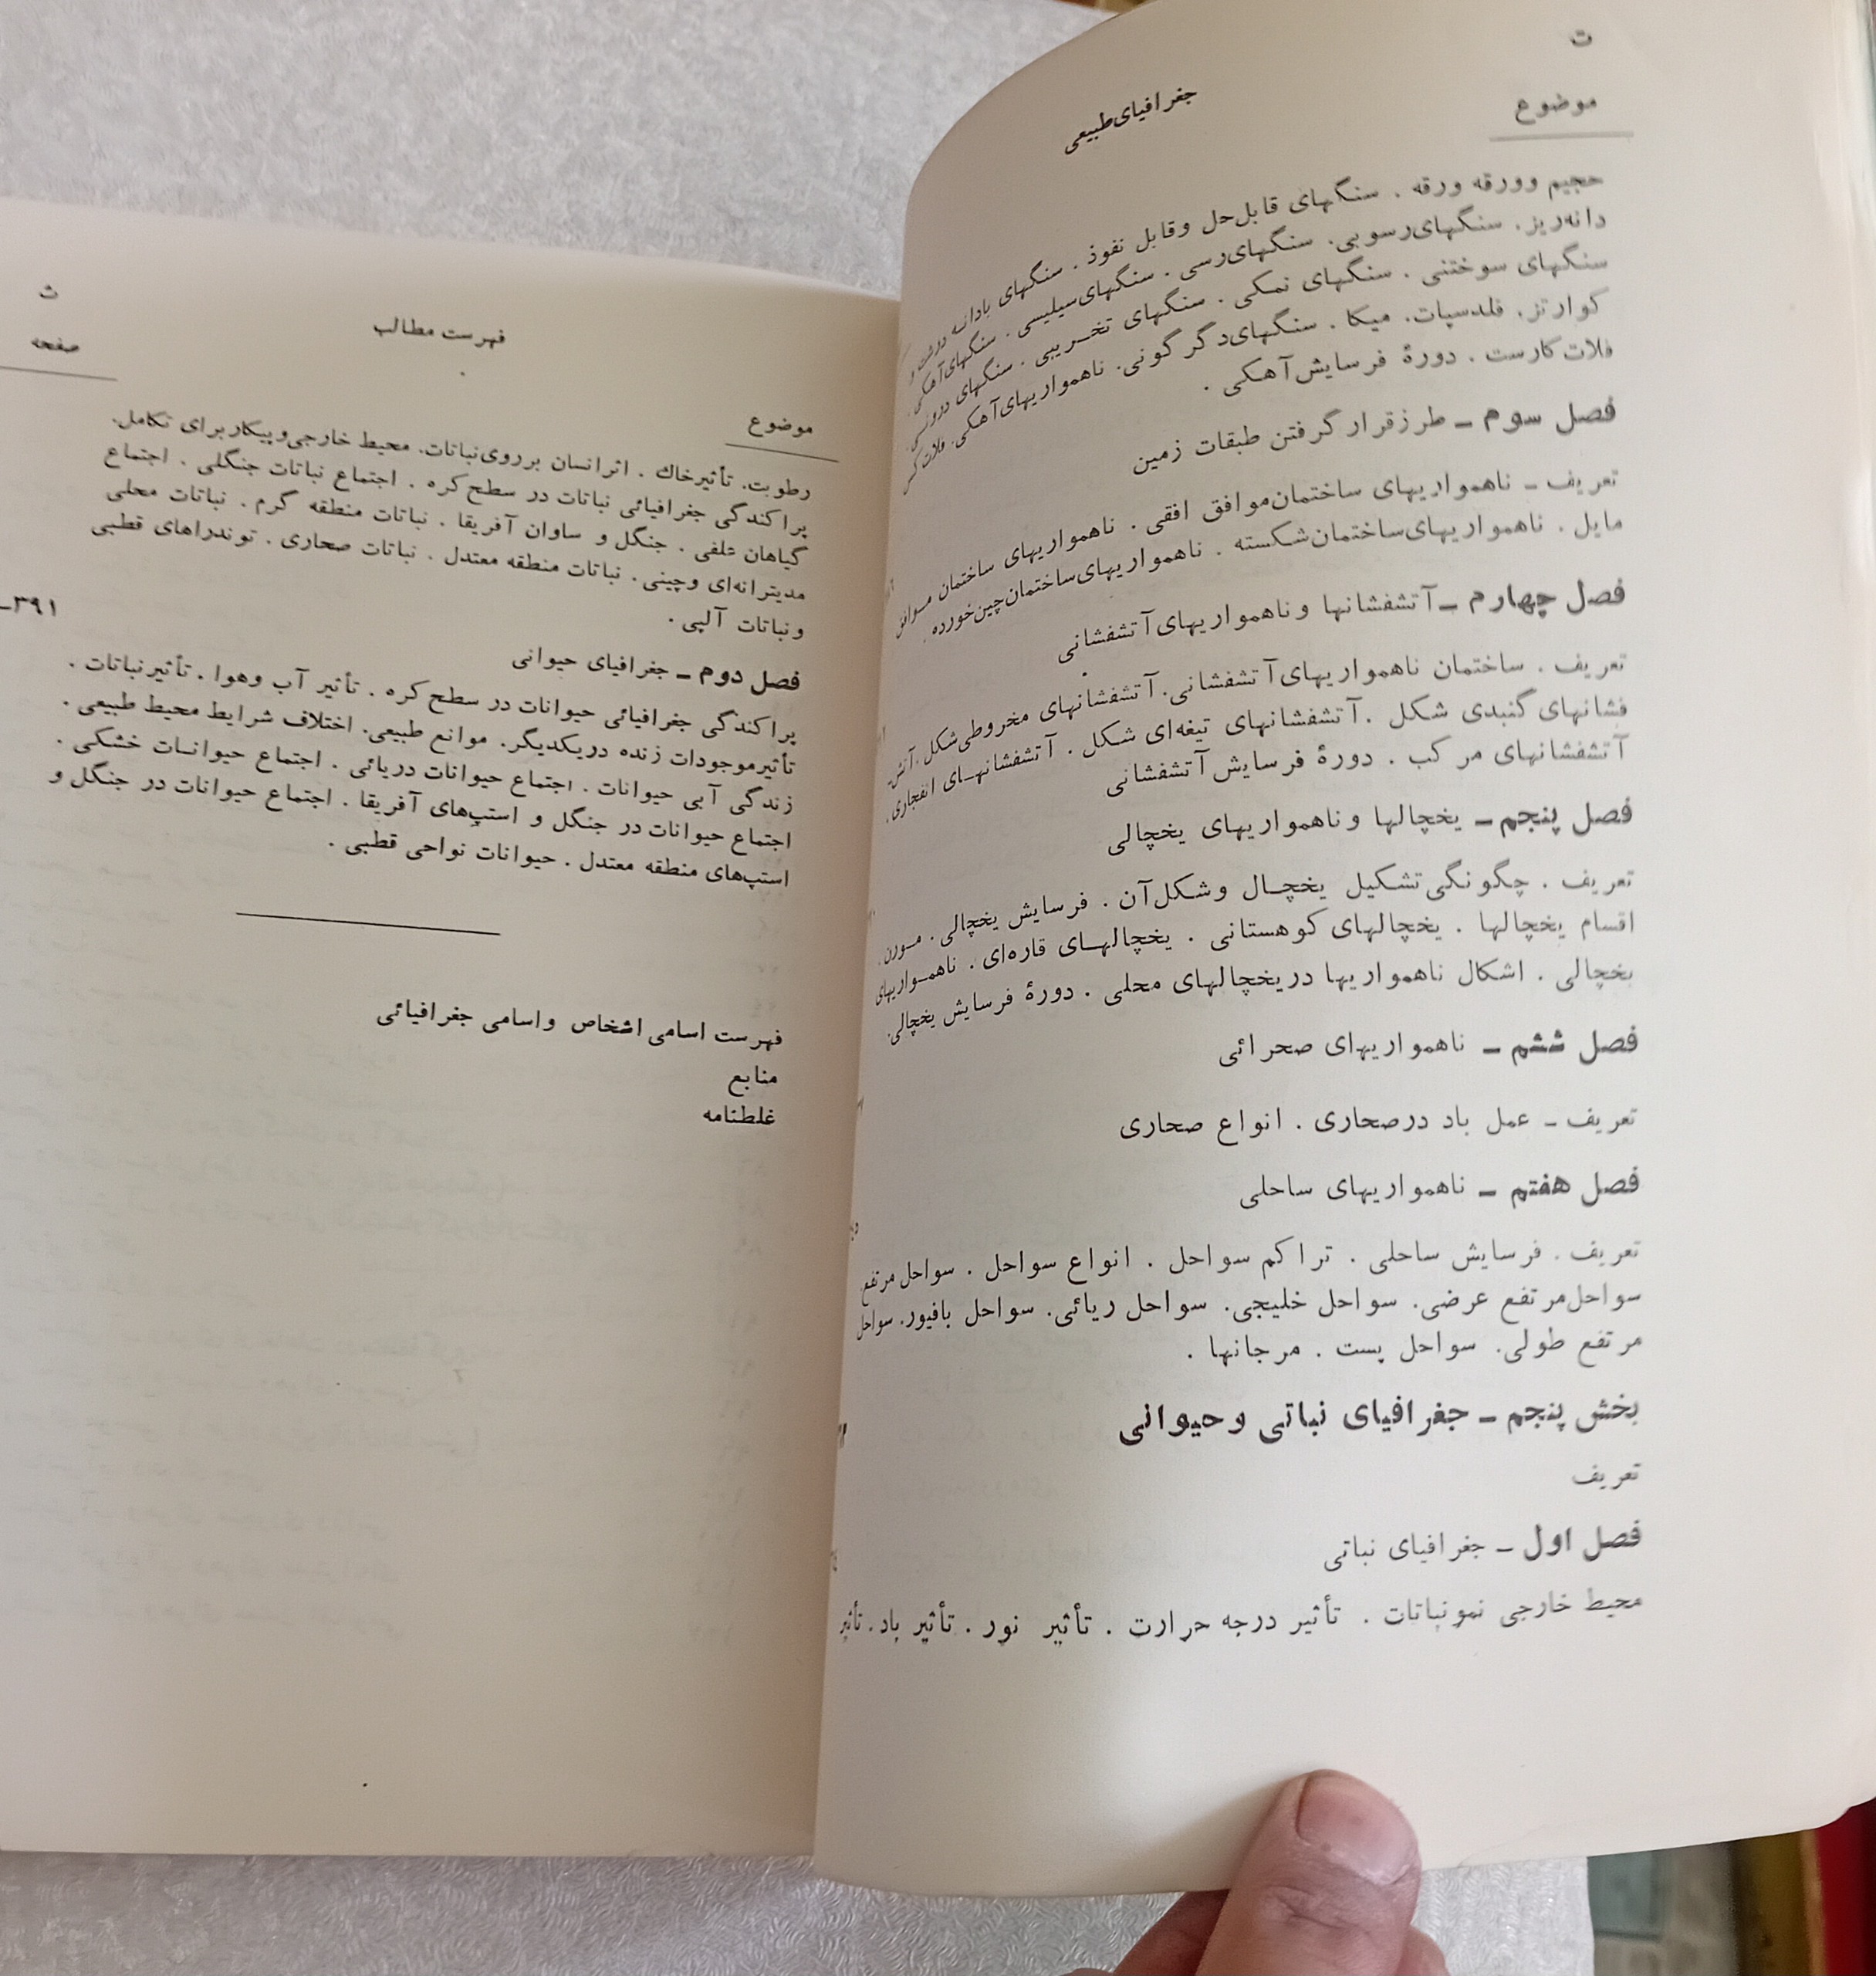 ت
جغرافیای طبیعی
موضوع
حجیم وورقه ورقه . سنگهای قابل‌حل وقابل نفوذ . سنگهای بادانه درشت و
دانه‌ریز. سنگهای‌رسوبی. سنگهای‌رسی . سنگهای‌سیلیسی . سنگهای‌آهکی .
سنگهای سوختنی . سنگهای نمکی . سنگهای تخریبی . سنگهای درونی.
کوارتز. فلدسپات. میکا . سنگهای‌دگرگونی. ناهمواریهای‌آهکی. فلات
فلات کارست . دورۀ فرسایش‌آهکی .
فصل سوم – طرزقرارگرفتن طبقات زمین
تعریف – ناهمواریهای ساختمان‌موافق افقی . ناهمواریهای ساختمان موافق
مایل . ناهمواریهای‌ساختمان‌شکسته . ناهمواریهای‌ساختمان‌چین‌خورده .
فصل چهارم – آتشفشانها وناهمواریهای‌آتشفشانی
تعریف . ساختمان ناهمواریهای‌آتشفشانی. آتشفشانهای مخروطی‌شکل . آتش‌
فشانهای گنبدی شکل . آتشفشانهای تیغه‌ای شکل . آتشفشانهای انفجاری .
آتشفشانهای مرکب . دورۀ فرسایش آتشفشانی
فصل پنجم – یخچالها وناهمواریهای یخچالی
تعریف . چگونگی‌تشکیل یخچال وشکل‌آن . فرسایش یخچالی . مورن .
اقسام یخچالها . یخچالهای کوهستانی . یخچالهای قاره‌ای . ناهمواریهای
یخچالی . اشکال ناهمواریها دریخچالهای محلی . دورۀ فرسایش یخچالی.
فصل ششم – ناهمواریهای صحرائی
تعریف – عمل باد درصحاری . انواع صحاری
فصل هفتم – ناهمواریهای ساحلی
تعریف . فرسایش ساحلی . تراکم سواحل . انواع سواحل . سواحل مرتفع
سواحل‌مرتفع عرضی. سواحل خلیجی. سواحل ریائی. سواحل بافیور. سواحل
مرتفع طولی. سواحل پست . مرجانها .
بخش پنجم – جغرافیای نباتی وحیوانی
تعریف
فصل اول – جغرافیای نباتی
محیط خارجی نمونباتات . تأثیر درجه حرارت . تأثیر نور . تأثیر باد . تأثیر
ث
فهرست مطالب
صفحه
موضوع
رطوبت. تأثیرخاك . اثرانسان برروی‌نباتات. محیط خارجی‌وپیکاربرای تکامل.
پراکندگی جغرافیائی نباتات در سطح‌کره . اجتماع نباتات جنگلی . اجتماع
گیاهان علفی . جنگل و ساوان آفریقا . نباتات منطقه گرم . نباتات محلی
مدیترانه‌ای وچینی . نباتات منطقه معتدل . نباتات صحاری . توندراهای قطبی
ونباتات آلپی .
۳۹۱–
فصل دوم – جغرافیای حیوانی
پراکندگی جغرافیائی حیوانات در سطح‌کره . تأثیر آب وهوا . تأثیرنباتات .
تأثیرموجودات زنده دریکدیگر. موانع طبیعی. اختلاف شرایط محیط طبیعی .
زندگی آبی حیوانات . اجتماع حیوانات دریائی . اجتماع حیوانات خشکی .
اجتماع حیوانات در جنگل و استپ‌های آفریقا . اجتماع حیوانات در جنگل و
استپ‌های منطقه معتدل . حیوانات نواحی قطبی .
فهرست اسامی اشخاص واسامی جغرافیائی
منابع
غلطنامه